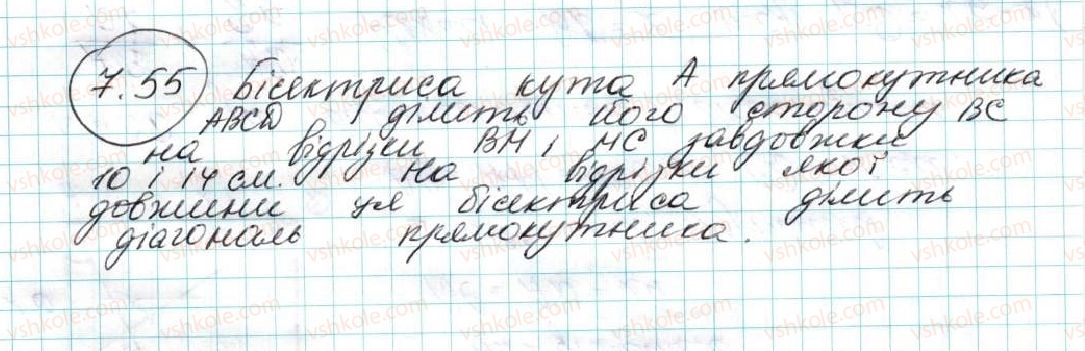 7.55 Бісектриса кута А прямокутника
ABCD ділить його сторону BC
на відрізки BH і HC завдовжки
10 і 14 см. На відрізки якої
довжини ця бісектриса ділить
діагональ прямокутника.
vshkole.com